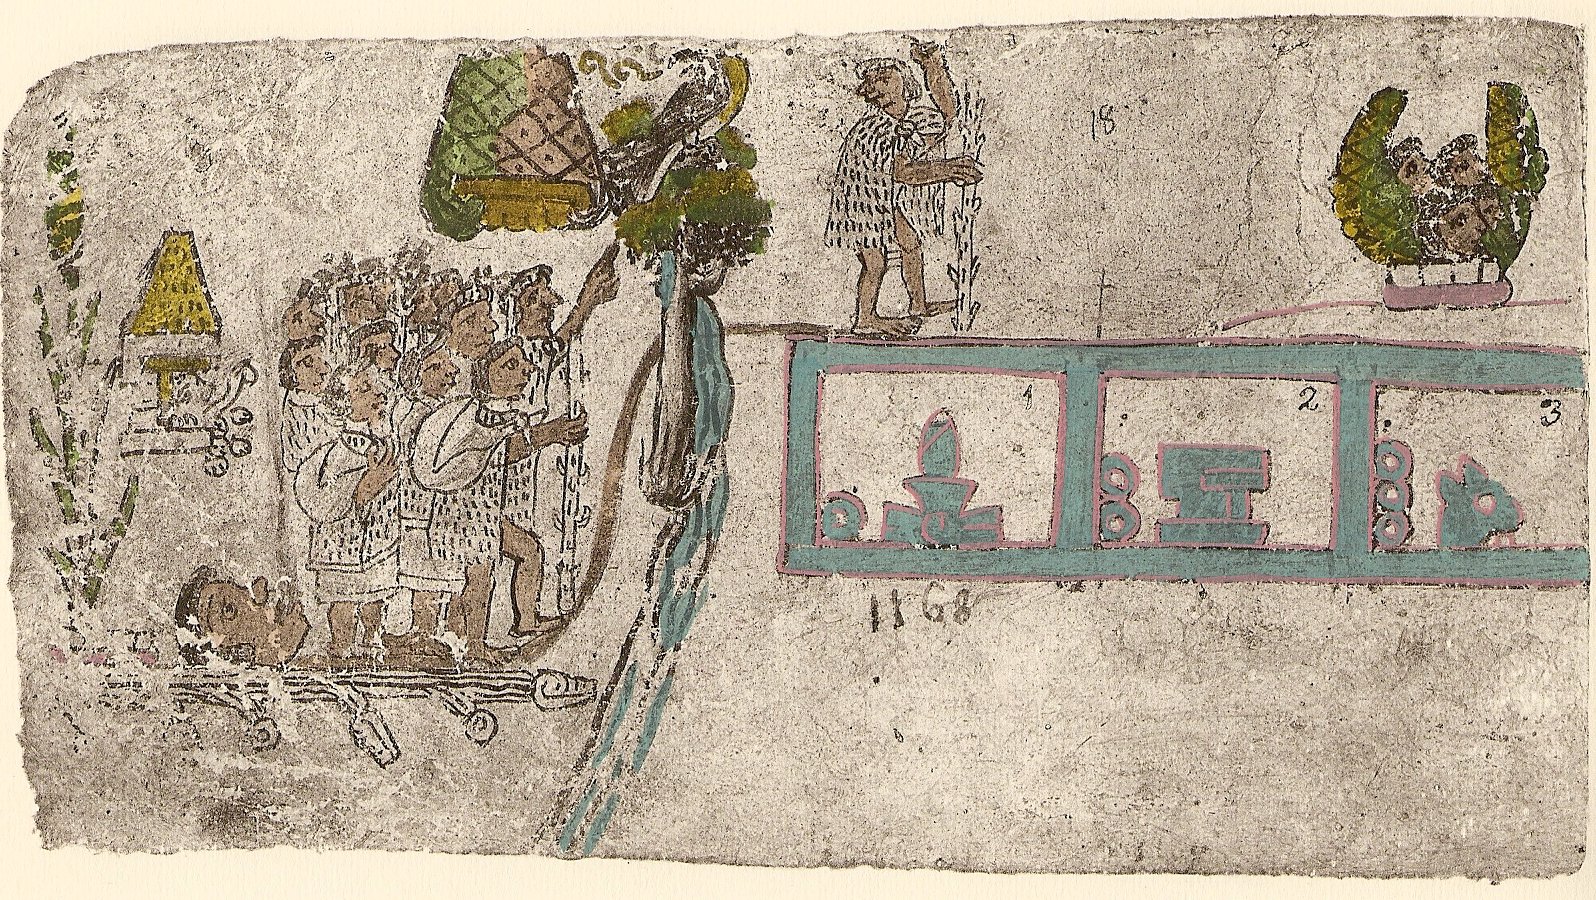 18
1 2 3
1168